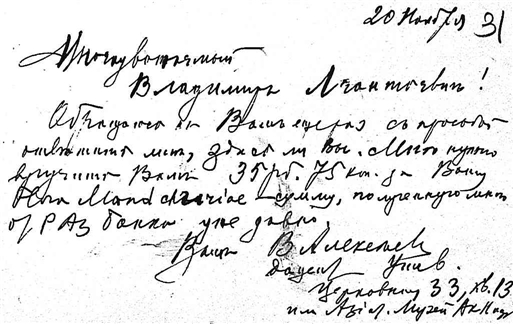 20 Ноября 31
Многоуважаемый
Владимир Леонтьевич!
Обращаюсь к Вам с просьбой
ответить мне, здесь ли Вы. Мне нужно
вручить Вам 35 рб. 75 коп. за Вашу
Flora Manchuriae – сумму, полученную мною
от банка уже давно.
Ваш В Алексеев
Церковная 33, кв. 13
или Азіат. Музей Ак Наук